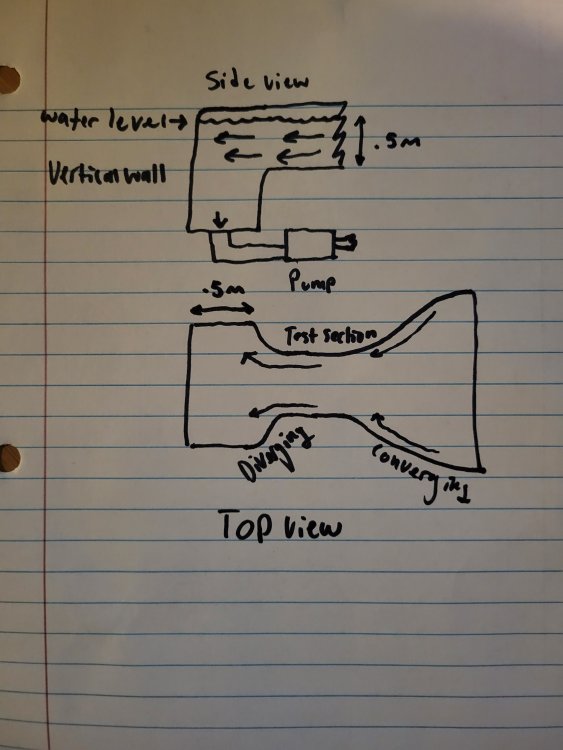 Side view
water level
.5m
Vertical wall
Pump
.5m
Test section
Diverging
Converging
Top view